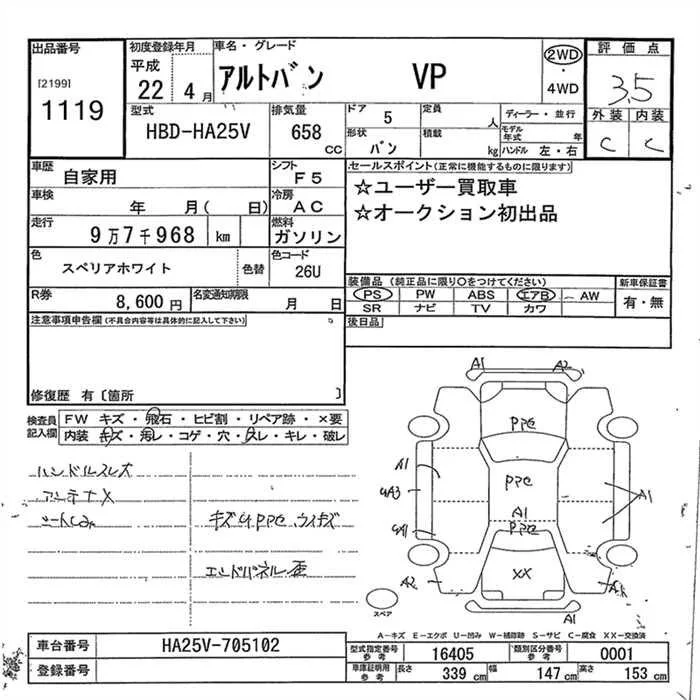 出品番号
[2199]
1119
初度登録年月
平成
22 4月
車名・グレード
アルトバン VP
2WD
・
4WD
評価点
3.5
外装 内装
C C
型式
HBD-HA25V
排気量
658 cc
ドア 5
形状 バン
定員 人
積載 kg
ディーラー・並行
モデル年式 年
ハンドル 左・右
車歴
自家用
シフト
F5
車検
年 月( 日)
冷房
AC
走行
9万7千968 km
燃料
ガソリン
色
スペリアホワイト
色替
色コード
26U
R券
8,600円
名変通知期限
月 日
セールスポイント(正常に機能するものに限ります)
☆ユーザー買取車
☆オークション初出品
装備品 (純正品に限り○をつけてください)
新車保証書
PS PW ABS エアB AW
SR ナビ TV カワ
有・無
後日品
注意事項申告欄(不具合内容等は具体的に記入して下さい)
修復歴 有〔箇所 〕
検査員
記入欄
FW キズ・飛石・ヒビ割・リペア跡・×要
内装・キズ・汚レ・コゲ・穴・スレ・キレ・破レ
ハンドルスレ大
アンテナX
キズU PPC ウスキズ
エンドパネル歪
A1 A2
PPC
A1
PPC
UA3
A1
A1
PPC
XX
A2
A1
スペア
A-キズ E-エクボ U-凹み W-補修跡 S-サビ C-腐食 XX-交換済
車台番号
HA25V-705102
登録番号
型式指定番号
参考
16405
類別区分番号
参考
0001
車庫証明用
参考
長さ 339 cm
幅 147 cm
高さ 153 cm